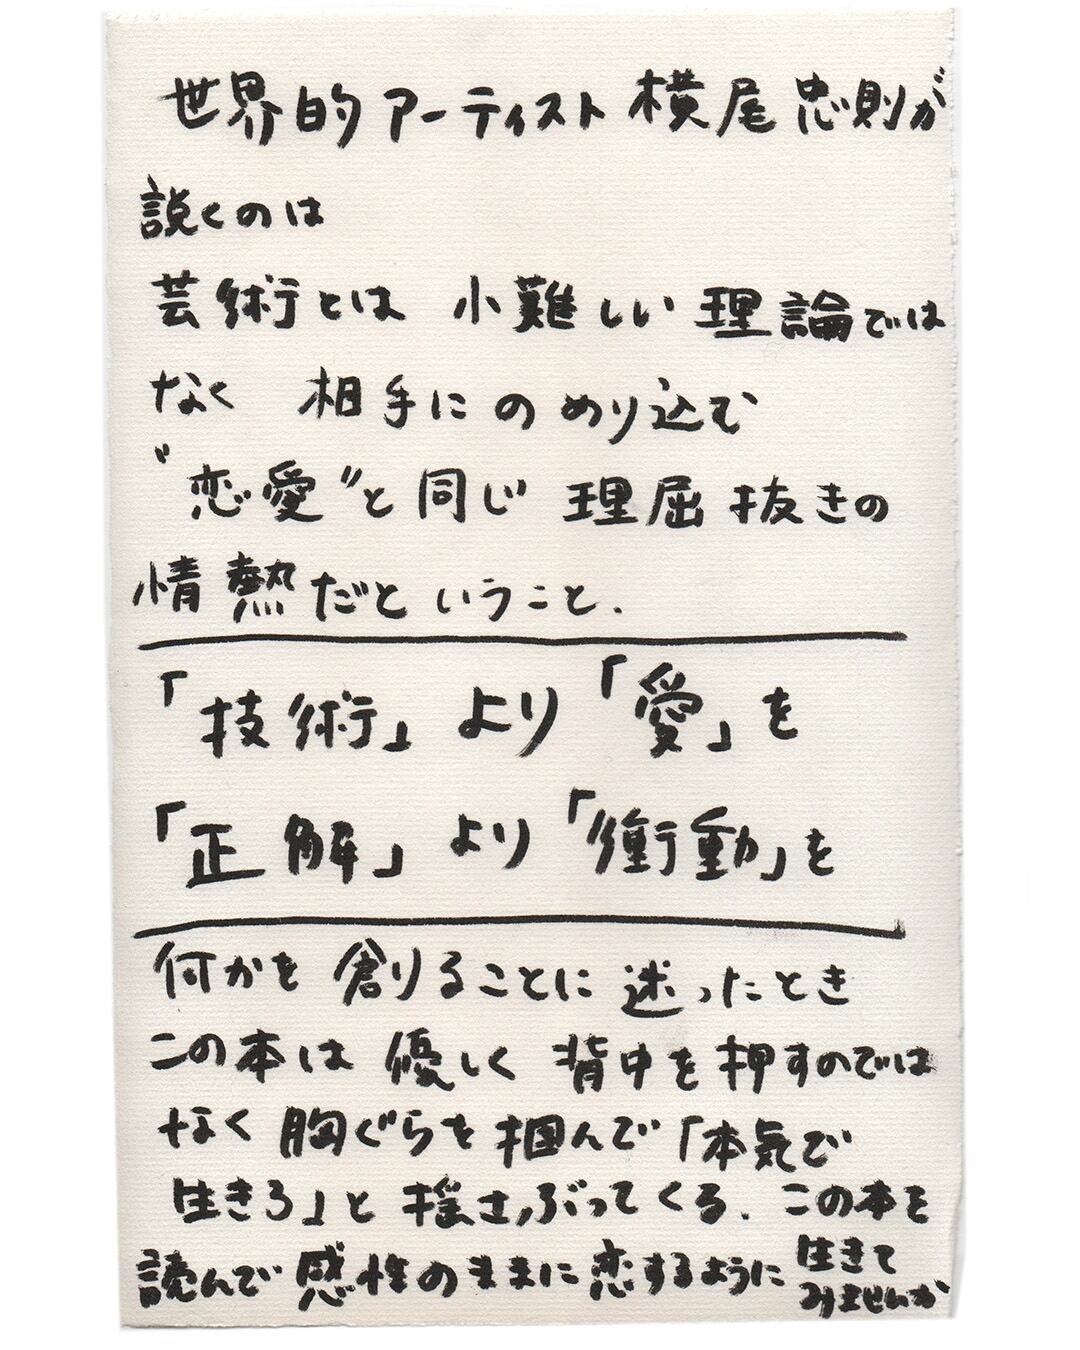 世界的アーティスト 横尾忠則が
説くのは
芸術とは 小難しい 理論では
なく 相手にのめり込む
"恋愛"と同じ 理屈抜きの
情熱だということ.
「技術」より「愛」を
「正解」より「衝動」を
何かを創りることに迷ったとき
この本は 優しく 背中を押すのでは
なく 胸ぐらを掴んで「本気で
生きろ」と揺さぶってくる. この本を
読んで 感性のままに恋するように 生きて
みませんか